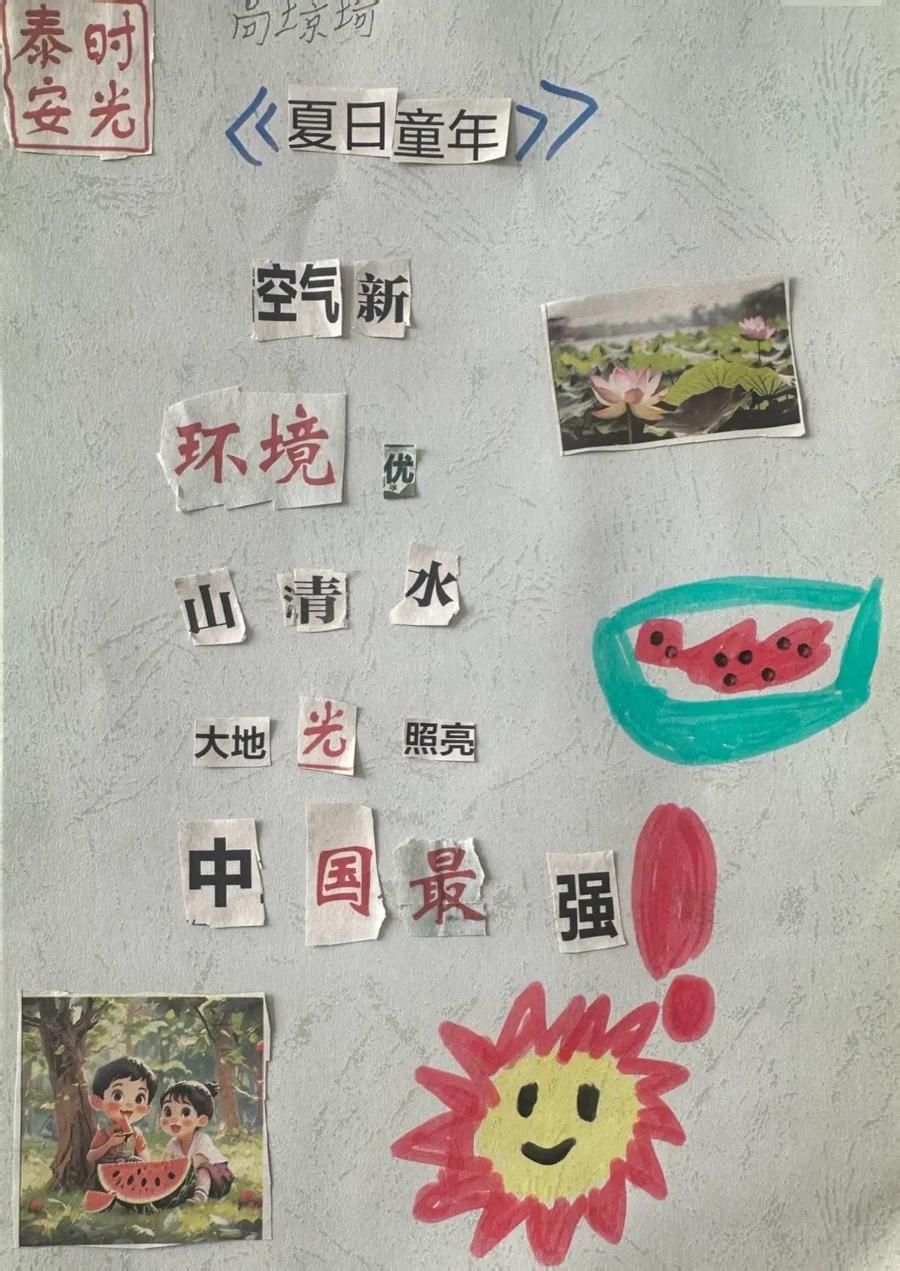 泰安
时光
《夏日童年》
空气新
环境优
山清水
大地光照亮
中国最强！